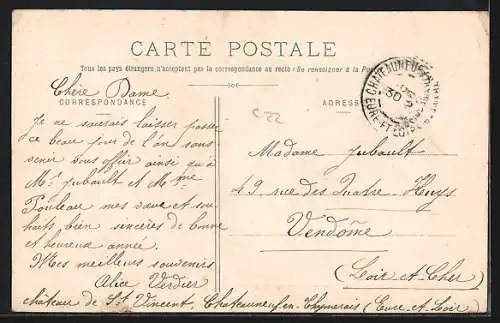 CARTE POSTALE
Tous les pays étrangers n'acceptent pas la correspondance au recto (Se renseigner à la Poste)
CORRESPONDANCE
ADRESSE
CHATEAUNEUF-EN-THYMERAIS
30
EURE-ET-LOIR
C22
Chère Dame
Je ne saurais laisser passer
ce beau jour de l'an sans
venir vous offrir ainsi qu'à
Mr Jubault et Mme
Pouleau mes vœux et sou-
haits bien sincères de bonne
et heureuse année.
Mes meilleurs souvenirs
Alice Verdier
château de St Vincent, Chateauneuf-en-Thymerais (Eure-et-Loir)
Madame Jubault
49 rue des Quatre-Huys
Vendôme
(Loir-et-Cher)